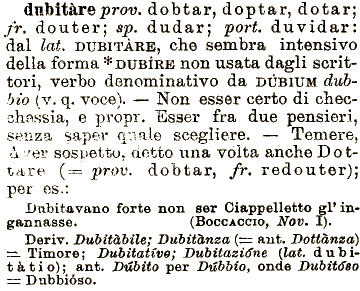 dubitàre prov. dobtar, doptar, dotar;
fr. douter; sp. dudar; port. duvidar:
dal lat. DUBITÀRE, che sembra intensivo
della forma *DUBÌRE non usata dagli scrit-
tori, verbo denominativo da DÙBIUM dub-
bio (v. q. voce). — Non esser certo di chec-
chessia, e propr. Esser fra due pensieri,
senza saper quale scegliere. — Temere,
Aver sospetto, detto una volta anche Dot-
tare (= prov. dobtar, fr. redouter);
per es.:
Dubitavano forte non ser Ciappelletto gl'in-
gannasse. (BOCCACCIO, Nov. I).
Deriv. Dubitàbile; Dubitànza (= ant. Dottànza)
= Timore; Dubitatìvo; Dubitazióne (lat. dubi-
tàtio); ant. Dúbito per Dúbbio, onde Dubitóso
= Dubbióso.